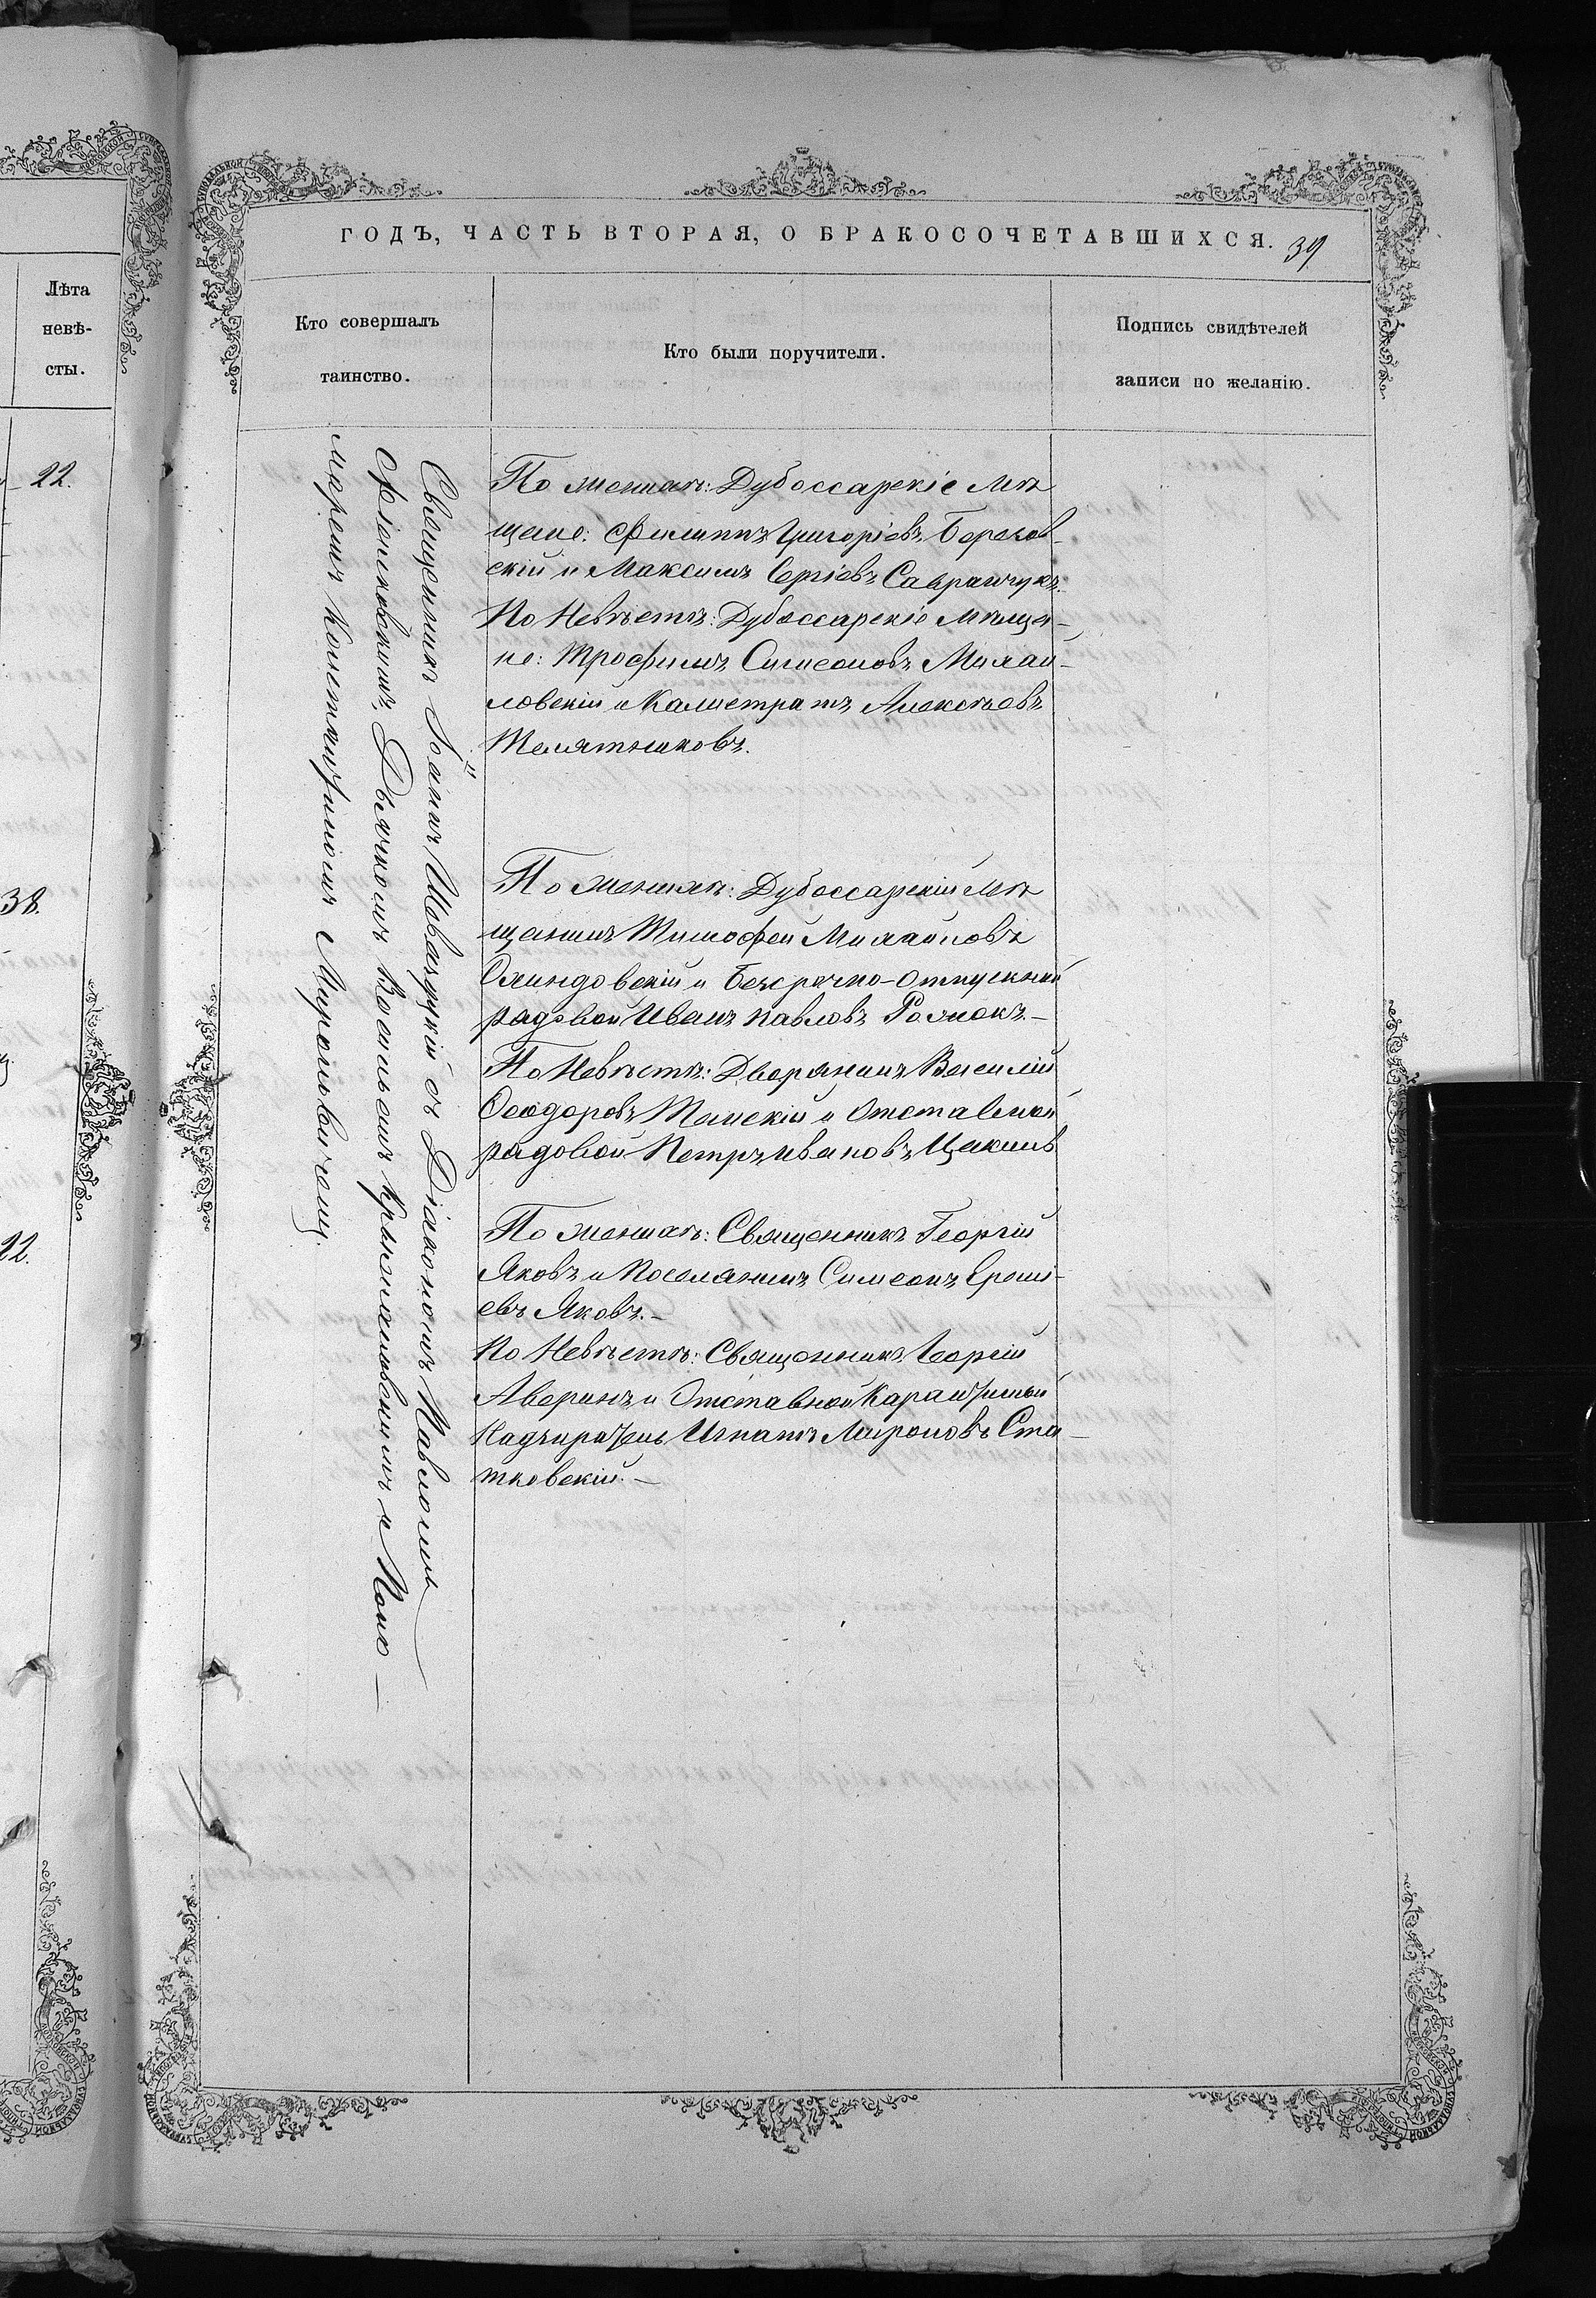 ГОДЪ, ЧАСТЬ ВТОРАЯ, О БРАКОСОЧЕТАВШИХСЯ. 39
Лѣта
невѣ-
сты.
22.
38.
22.
Кто совершалъ
таинство.
Кто были поручители.
Подпись свидѣтелей
записи по желанію.
Священникъ Іоаннъ Шевазуцкій съ Діакономъ Павломъ
Дьячкомъ Василіемъ и Поно-
маремъ Константиномъ Мироновичемъ.
По женихѣ: Дубоссарскіе мѣ
щане: Филиппъ Григоріевъ Берегов-
скій и Максимъ Сергіевъ Савранчукъ.
По Невѣстѣ: Дубоссарскіе мѣща-
не: Трофимъ Симеоновъ Михай-
ловскій и Калистратъ Алексѣевъ
Телятниковъ.
По женихѣ: Дубоссарскій мѣ
щанинъ Тимофей Михайловъ
Олиндовскій и Безсрочно-отпускной
рядовой Иванъ Павловъ
По Невѣстѣ: Дворянинъ Василій
Ѳеодоровъ Томскій и Отставной
рядовой Петръ Ивановъ
По женихѣ: Священникъ Георгій
Яковъ и Поселянинъ Симеонъ
евъ Яковъ.-
По Невѣстѣ: Священникъ Георгій
Аверинъ и Отставной Карантинный
Надзиратель Игнатъ Мироновъ Ста-
тковскій.-